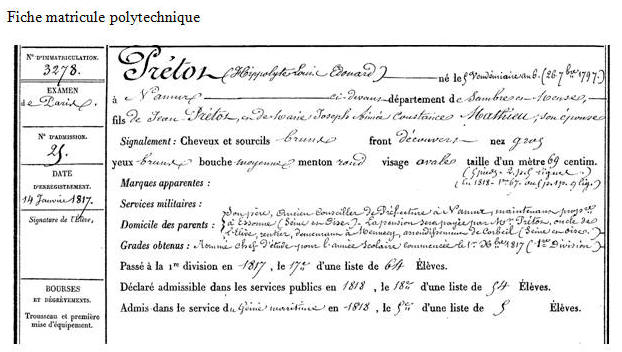 Fiche matricule polytechnique
N° D'IMMATRICULATION.
3278.
EXAMEN
de Paris.
N° D'ADMISSION.
25.
DATE
D'ENREGISTREMENT.
14 Janvier 1817.
Signature de l'Élève,
BOURSES
ET DÉGRÈVEMENTS.
Trousseau et première
mise d'équipement.
Prétot (Hippolyte Louis Edouard) né le 5 Vendémiaire an 6. (26 7bre 1797.)
à Namur ci-devant département de Sambre et Meuse,
fils de Jean Prétot, et de Marie Joseph Aimée Constance Mathieu, son épouse
Signalement : Cheveux et sourcils bruns front découvert nez gros
yeux bruns bouche moyenne menton rond visage ovale taille d'un mètre 69 centim.
Marques apparentes : (En 1818. 1m 67. ou 5p. 1p. 9 lig.)
Services militaires :
Domicile des parents : Son père, Ancien Conseiller de Préfecture à Namur, maintenant
à Essonne (Seine et Oise). La pension sera payée par Mr. Prétot, oncle de
l'élève, rentier, demeurant à Mennecy, arrondissement de Corbeil (Seine et oise.)
Grades obtenus : Nommé chef d'étude pour l'année scolaire commencée le 1er 9bre 1817 (1ère Division)
Passé à la 1re division en 1817, le 17e d'une liste de 64 Élèves.
Déclaré admissible dans les services publics en 1818, le 18e d'une liste de 54 Élèves.
Admis dans le service du Génie maritime en 1818, le 5e d'une liste de 5 Élèves.